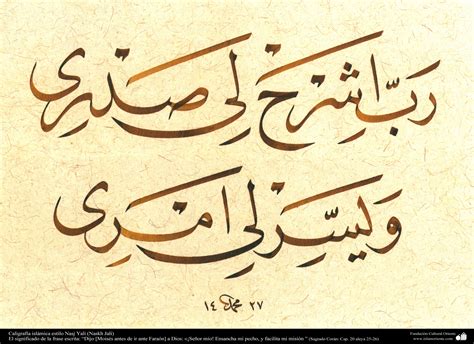 رَبِّ اشْرَحْ لِی صَدْرِی
وَ یَسِّرْ لِی اَمْرِی
١٤ محمد ٢٧
Caligrafía islámica estilo Nasj Yali (Naskh Jali)
El significado de la frase escrita: "Dijo [Moisés antes de ir ante Faraón] a Dios: «¡Señor mío! Ensancha mi pecho, y facilita mi misión " (Sagrado Corán: Cap. 20 aleya 25-26)
Fundación Cultural Oriente